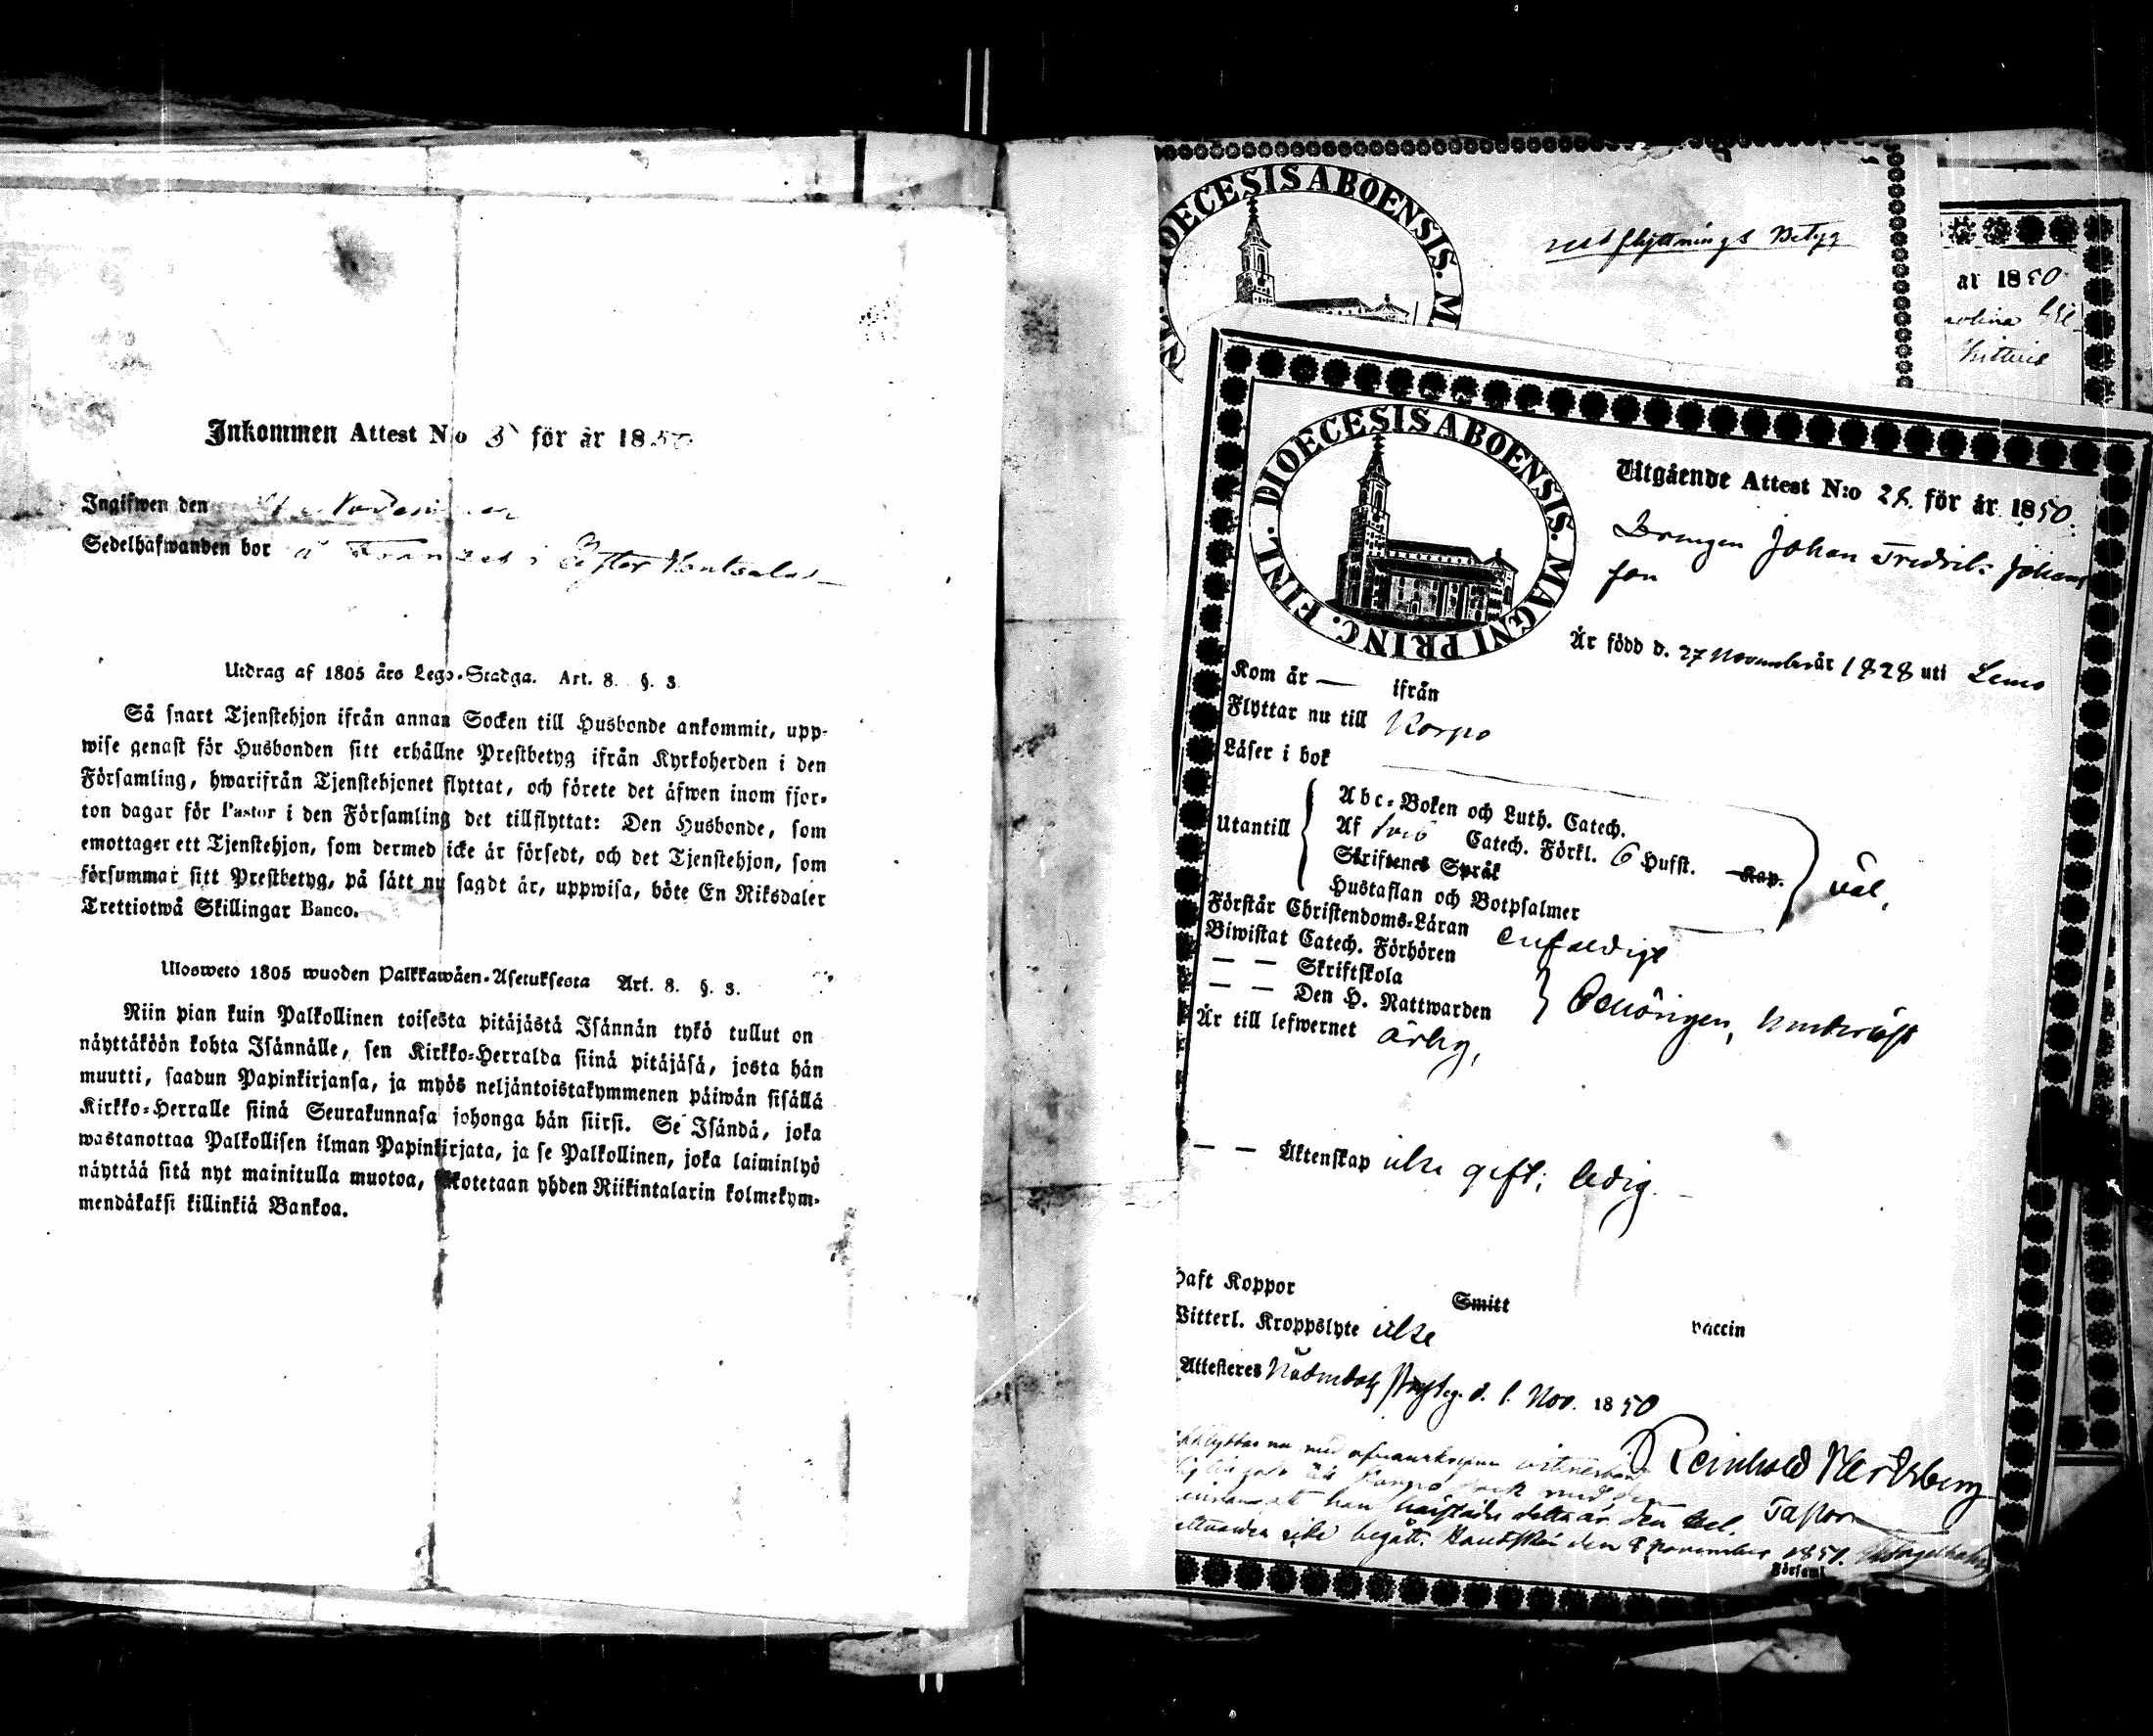 Inkommen Attest N:o 3 för år 1850
Ingifwen den
Sedelhafwanden bor å
Utdrag af 1805 års Lego-Stadga. Art. 8. §. 3.
Så snart Tjenstehjon ifrån annan Socken till Husbonde ankommit, upp-
wise genast för Husbonden sitt erhållne Prestbetyg ifrån Kyrkoherden i den
Församling, hwarifrån Tjenstehjonet flyttat, och förete det äfwen inom fjor-
ton dagar för Pastor i den Församling det tillflyttat: Den Husbonde, som
emottager ett Tjenstehjon, som dermed icke är försedt, och det Tjenstehjon, som
försummar sitt Prestbetyg, på sätt nu sagdt är, uppwisa, böte En Riksdaler
Trettiotwå Skillingar Banco.
Ulosweto 1805 wuoden Palkkawäen-Asetuksesta Art. 8. §. 3.
Niin pian kuin Palkollinen toisesta pitäjästä Isännän tykö tullut on
näyttäköön kohta Isännälle, sen Kirkko-Herralda siinä pitäjäsä, josta hän
muutti, saadun Papinkirjansa, ja myös neljäntoistakymmenen päiwän sisällä
Kirkko-Herralle siinä Seurakunnasa johonga hän siirsi. Se Isändä, joka
wastanottaa Palkollisen ilman Papinkirjata, ja se Palkollinen, joka laiminlyö
näyttää sitä nyt mainitulla muotoa, sakotetaan yhden Riikintalarin kolmekym-
mendäkaksi killinkiä Bankoa.
DIOECESIS ABOENSIS. M
utflyttnings Betyg
år 1850
DIOECESIS ABOENSIS. MAGNI PRINC. FINL.
Utgående Attest N:o 28. för år 1850.
Drengen Johan Fredrik Johans
son
Är född d. 27 November år 1828 uti Lemo
Kom år — ifrån
Flyttar nu till Korpo
Läser i bok
Utantill
Abc-Boken och Luth. Catech.
Af Sveb Catech. Förkl. 6 Hufst. Kap.
Skriftenes Språk
Hustaflan och Botpsalmer
väl,
Förstår Christendoms-Läran enfaldigt
Biwistat Catech. Förhören
— — Skriftskola
— — Den H. Nattwarden
Behörigen,
Är till lefwernet ärlig,
— — Äktenskap icke gift; ledig
Haft Koppor Smitt vaccin
Witterl. Kroppslyte icke
Attesteras Nådendals d. 1. Nov. 1850
Reinhold
Pastor
han härstädes detta år den Hel.
icke begått. den 8 November 1851.
Församl.